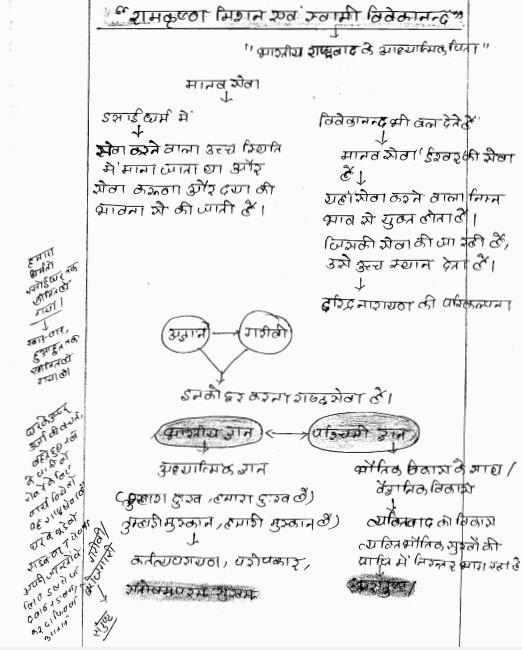 "रामकृष्ण मिशन एवं स्वामी विवेकानन्द"
"भारतीय राष्ट्रवाद के आध्यात्मिक पिता"
मानव सेवा
↓
ईसाई धर्म में
↓
सेवा करने वाला उच्च स्थिति
में माना जाता था और
सेवा करूणा और दया की
भावना से की जाती है।
विवेकानन्द भी बल देते हैं
↓
मानव सेवा ईश्वर की सेवा
है
↓
यहां सेवा करने वाला निम्न
भाव से युक्त होता है।
जिसकी सेवा की जा रही है,
उसे उच्च स्थान देता है।
↓
दरिद्रनारायण की परिकल्पना
अज्ञान → गरीबी
इनको दूर करना राष्ट्र सेवा है।
भारतीय ज्ञान ↔ पश्चिमी ज्ञान
आध्यात्मिक ज्ञान
(तुम्हारा दुःख, हमारा दुःख है)
तुम्हारी मुस्कान, हमारी मुस्कान है)
↓
कर्तव्यपरायणता, परोपकार,
संतोषम परम सुखम
भौतिक विकास के साथ /
वैज्ञानिक विकास
↓
व्यक्तिवाद का विकास
व्यक्ति भौतिक सुखों की
प्राप्ति में निरन्तर भाग रहा है
असंतुष्ट /
हमारा
धर्म तो
रसोईघर तक
सीमित हो
गया।
↓
खान-पान,
छुआछूत तक
सीमित हो
गया है।
गरीबी /
बेरोजगारी
↓
संतुष्ट